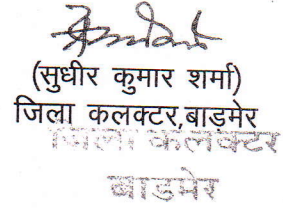 (सुधीर कुमार शर्मा)
जिला कलक्टर,बाडमेर
जिला कलक्टर
बाडमेर